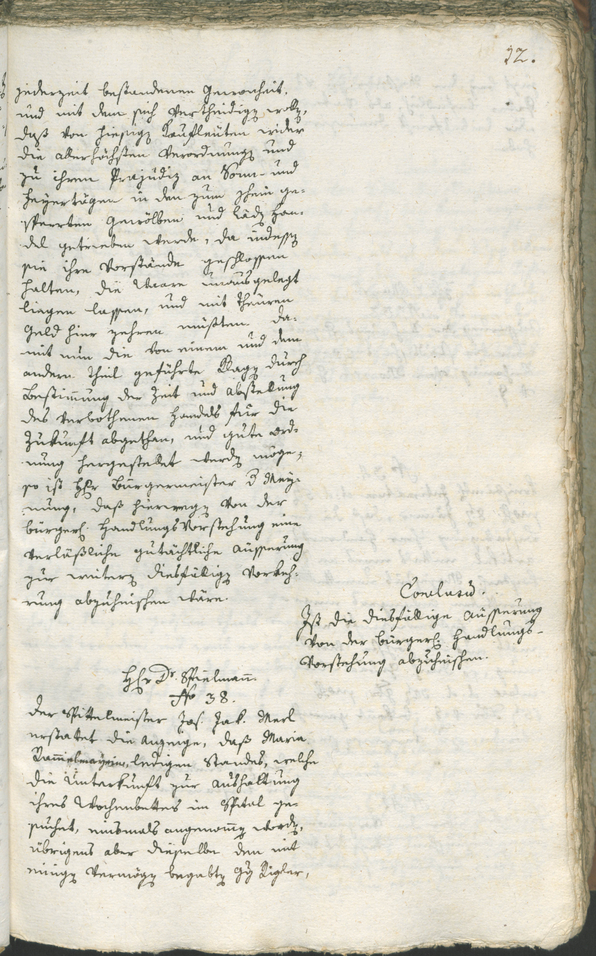 12.
jederzeit bestandenen Gewonheit,
und mit dem sich vertheidigen woll,
daß von hiesigen Kaufleuten wider
die allerhöchsten Verordnungen und
zu ihrem Präjudiz an Sonn- und
Feyertägen in den zum Schein ge-
sperrten Gewölben und Läden Han-
del getrieben werde, da indessen
sie ihre Vorstände geschlossen
halten, die Waare unausgelegt
liegen lassen, und mit theuren
Geld hier zehren müßten. Da-
mit nun die von einem und dem
andern Theil geführte Klage durch
Bestimmung der Zeit und Abstellung
des verbothenen Handels für die
Zukunft abgethan, und gute Ord-
nung hergestellet werden möge,
so ist Hr Bürgermeister Mey-
nung, daß hierwegen von der
bürgerl. Handlungs Vorstehung eine
verläßliche gutächtliche Äusserung
zur weitern diesfälligen Vorkeh-
rung abzuheischen wäre.
Conclusum.
Ist die diesfällige Äusserung
von der bürgerl. Handlungs-
Vorstehung abzuheischen.
Hr Dr. Spielmann
No 38.
Der Spittelmeister Jos. Jak. Merl
erstatet die Anzeige, daß Maria
ledigen Standes, welche
die Unterkunft zur Aushaltung
ihres Wochenbettes im Spital ge-
suchet, einsmals angenommen worden,
übrigens aber dieselbe dem mit
einigen Vermögen begabten